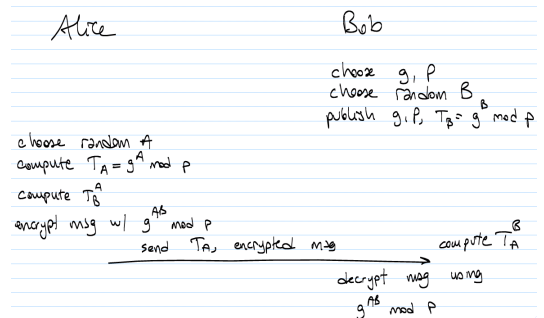 Alice Bob
choose g, P
choose random B
publish g, P, T_B = g^B mod p
choose random A
compute T_A = g^A mod p
compute T_B^A
encrypt msg w/ g^AB mod p
send T_A, encrypted msg compute T_A^B
decrypt msg using
g^AB mod p